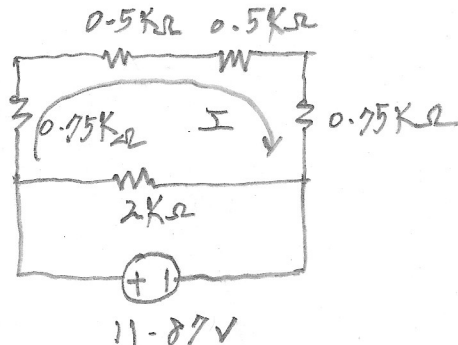 0.5KΩ 0.5KΩ
0.75KΩ I 0.75KΩ
2KΩ
+ -
11.87V